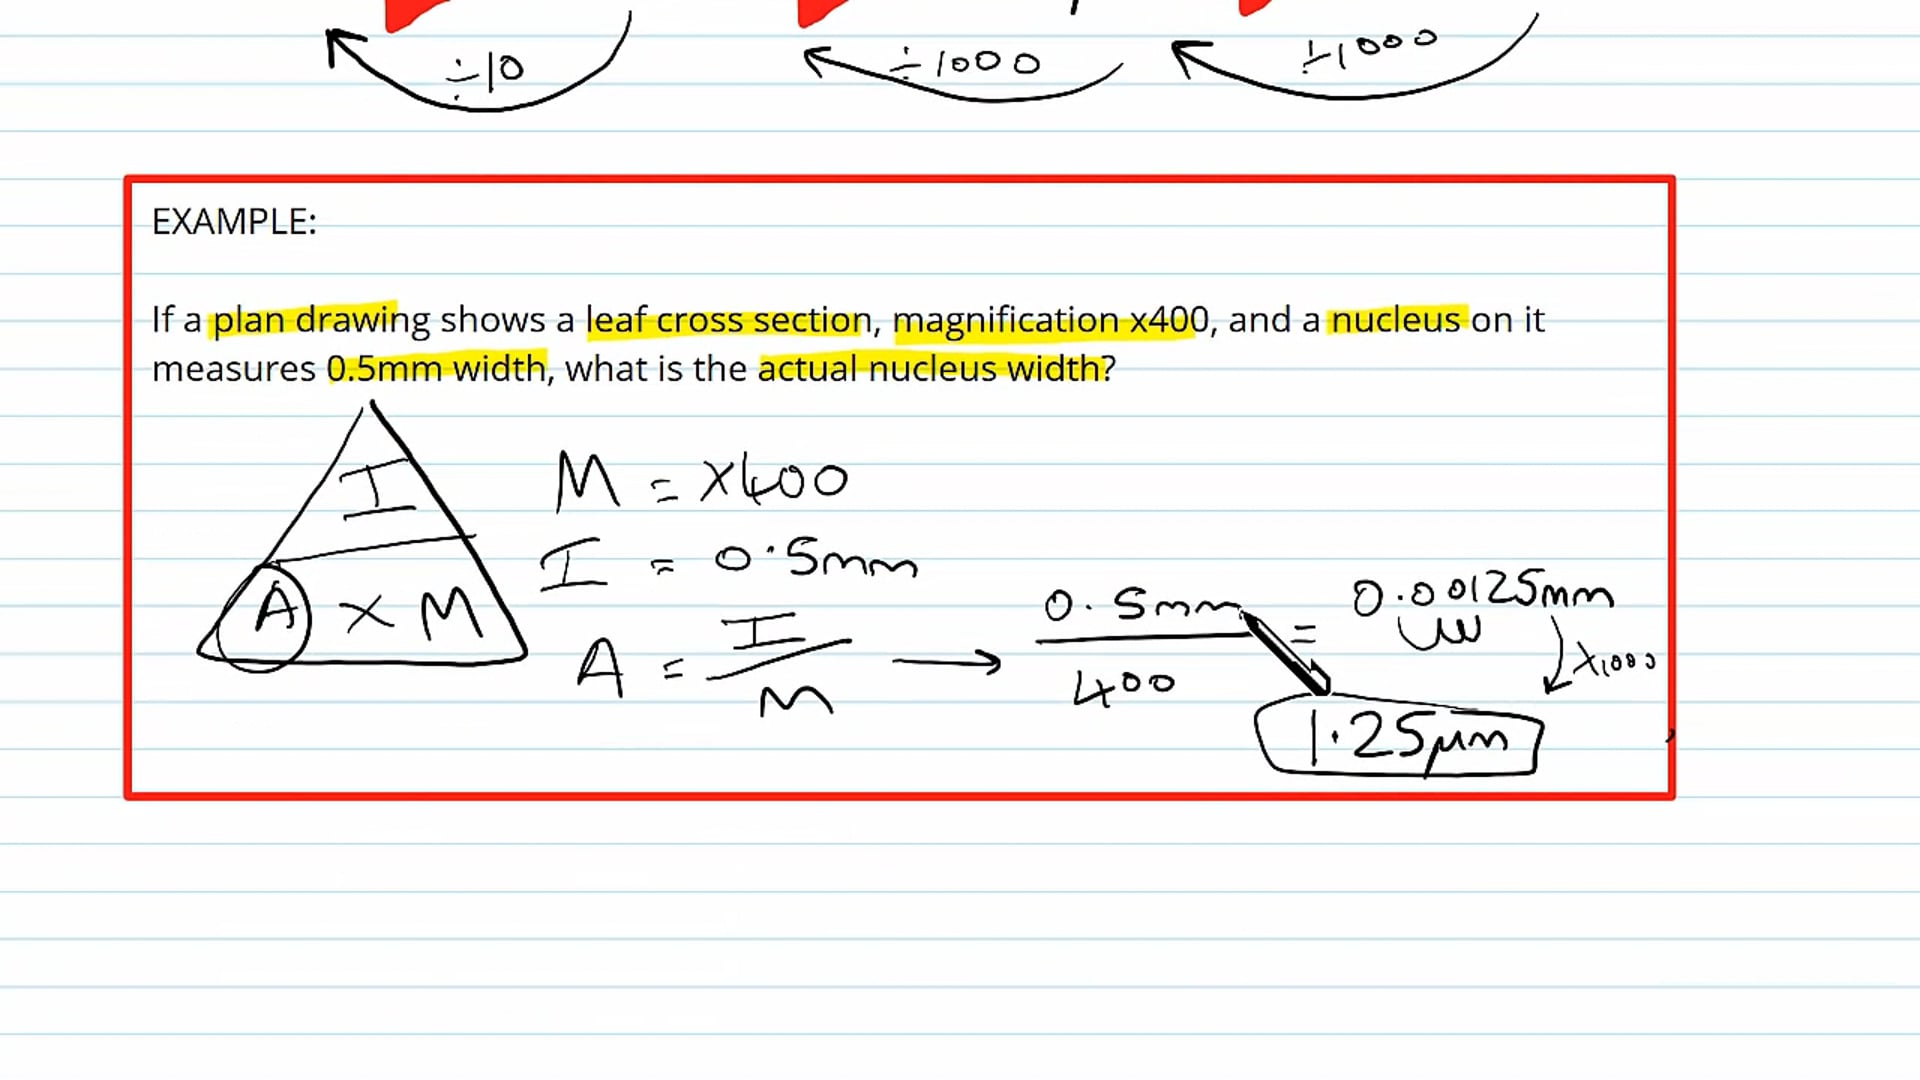 ÷10
÷1000
÷1000
EXAMPLE:
If a plan drawing shows a leaf cross section, magnification x400, and a nucleus on it
measures 0.5mm width, what is the actual nucleus width?
I
A × M
M = ×400
I = 0.5mm
A = I/M → 0.5mm/400 = 0.00125mm
×1000
1.25μm